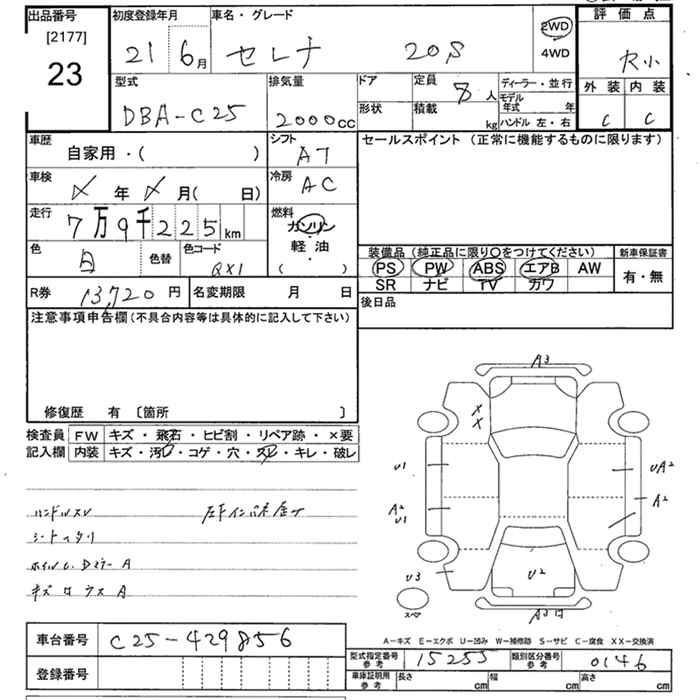 出品番号
[2177]
23
初度登録年月
21 6月
車名・グレード
セレナ 20S
2WD
4WD
評価点
外装 内装
C C
型式
DBA-C25
排気量
2000cc
ドア
形状
定員 8人
積載 kg
ディーラー・並行
モデル年式 年
ハンドル 左・右
車歴
自家用・( )
シフト
AT
セールスポイント (正常に機能するものに限ります)
車検
年 月( 日)
冷房
AC
走行
7万9千225km
燃料
ガソリン
軽・油
( )
色
白
色替
色コード
QX1
装備品 (純正品に限り〇をつけてください)
PS PW ABS エアB AW
SR ナビ TV カワ
新車保証書
有・無
R券 13,720円
名変期限 月 日
後日品
注意事項申告欄(不具合内容等は具体的に記入して下さい)
修復歴 有 〔箇所 〕
検査員記入欄
FW キズ・飛石・ヒビ割・リペア跡・×要
内装 キズ・汚レ・コゲ・穴・スレ・キレ・破レ
ハンドルスレ
シートヘタリ
A3
X
X
U1
UA2
A2
A2
U1
U3
U2
スペア
A-キズ E-エクボ U-凹み W-補修跡 S-サビ C-腐食 XX-交換済
車台番号 C25-429856
登録番号
型式指定番号 参考 15255
類別区分番号 参考 0146
車庫証明用 参考 長さ cm 幅 cm 高さ cm